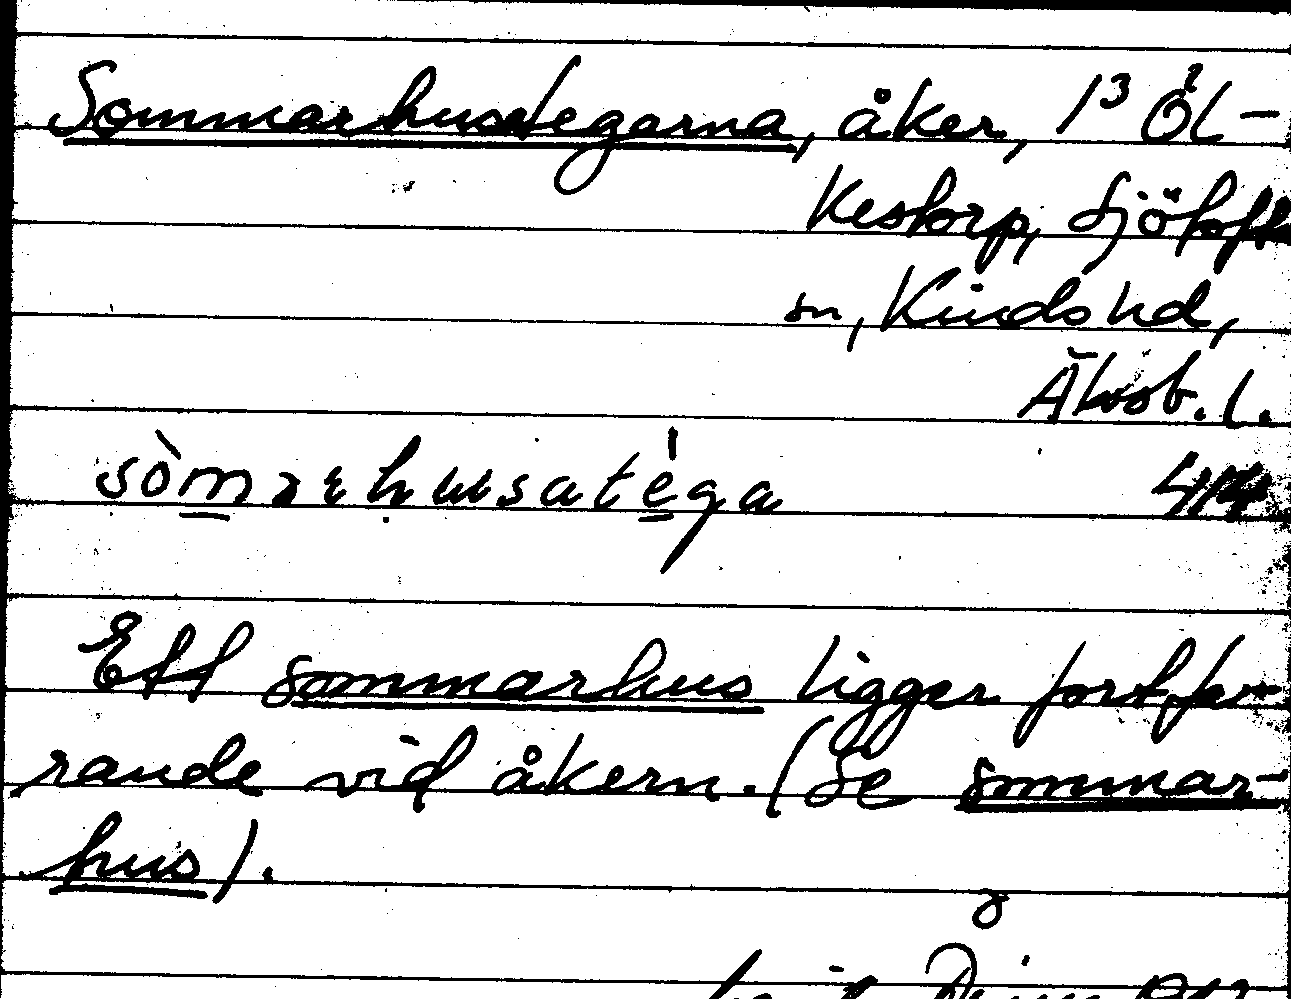 Sommarhustegarna, åker, 1³ Öl-
kestorp, Sjötofta
sn, Kinds hd,
Älvsb. l.
Ett sommarhus ligger fortfa-
rande vid åkern. (Se sommar-
hus).